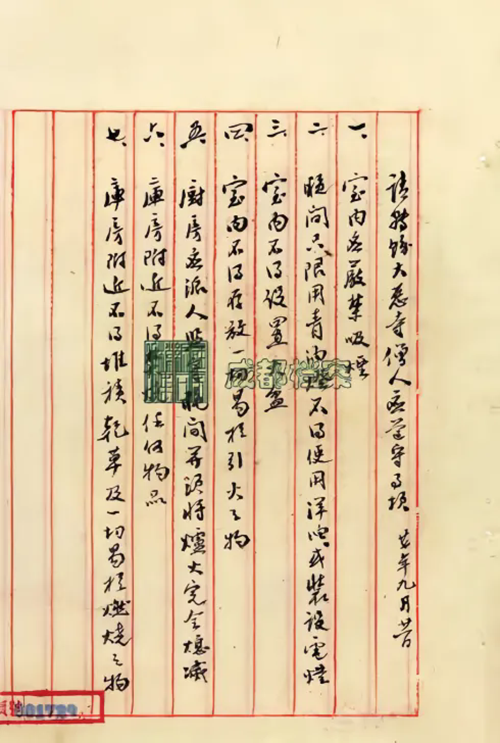 請轉飭大慈寺僧人應遵守事項 廿七年九月廿
一、室内應嚴禁吸煙
二、夜間只限用青油燈不得使用洋油或裝設電燈
三、室内不得設置火盆
四、室内不得存放一切易於引火之物
五、厨房應派人 夜間并須將爐火完全熄滅
六、庫房附近不得 任何物品
七、庫房附近不得堆積乾草及一切易於燃燒之物
成都档案
001729